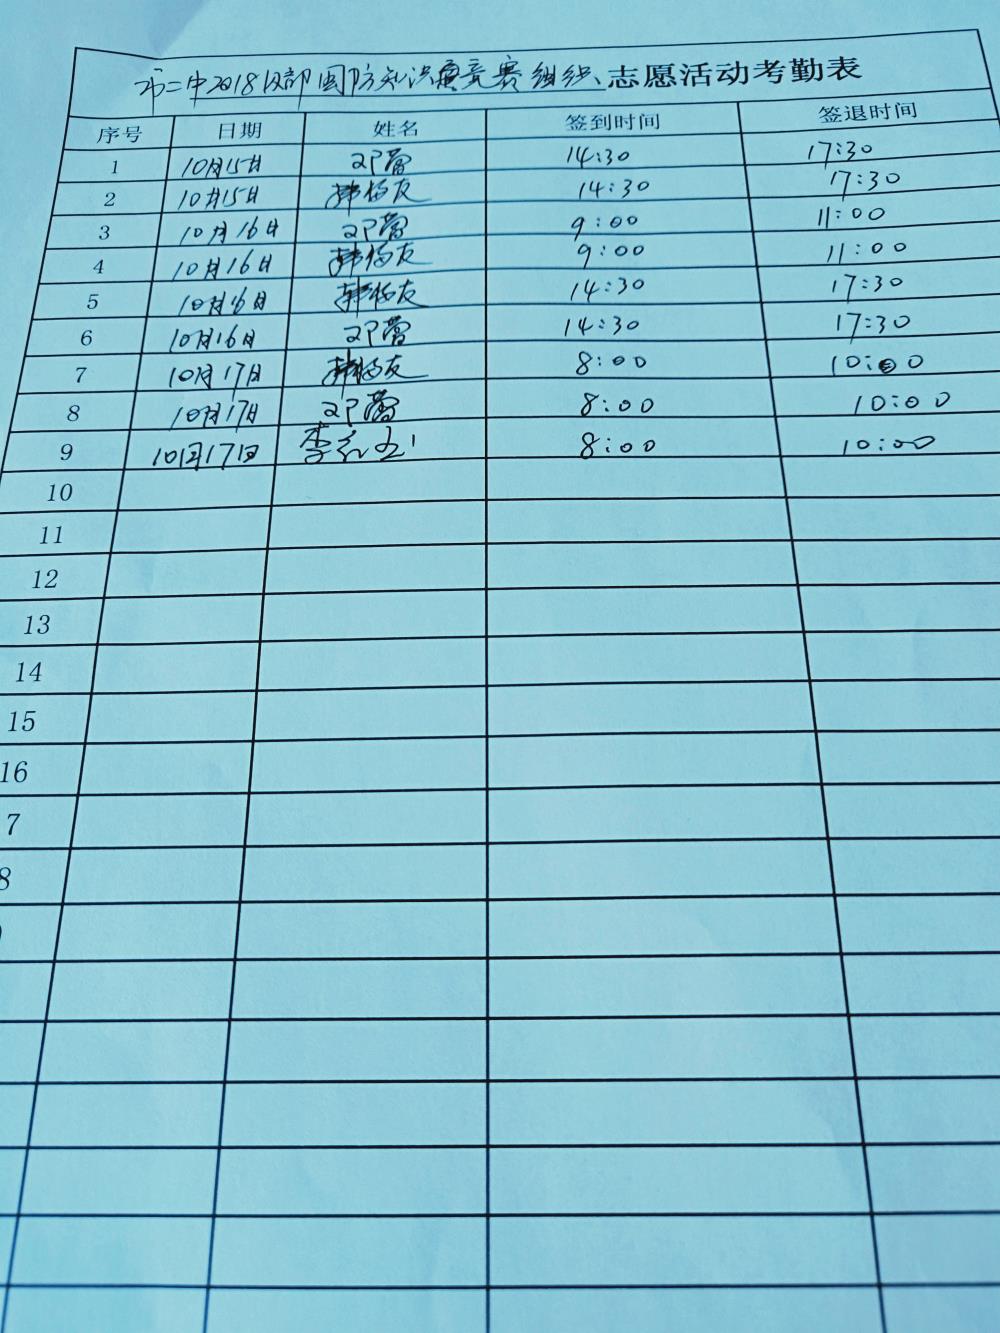 市二中2018级部国防知识竞赛组织志愿活动考勤表
序号 日期 姓名 签到时间 签退时间
1 10月15日 邓蕾 14:30 17:30
2 10月15日 韩 友 14:30 17:30
3 10月16日 邓蕾 9:00 11:00
4 10月16日 韩 友 9:00 11:00
5 10月16日 韩 友 14:30 17:30
6 10月16日 邓蕾 14:30 17:30
7 10月17日 韩 友 8:00 10:00
8 10月17日 邓蕾 8:00 10:00
9 10月17日 李红 8:00 10:00
10
11
12
13
14
15
16
7
8